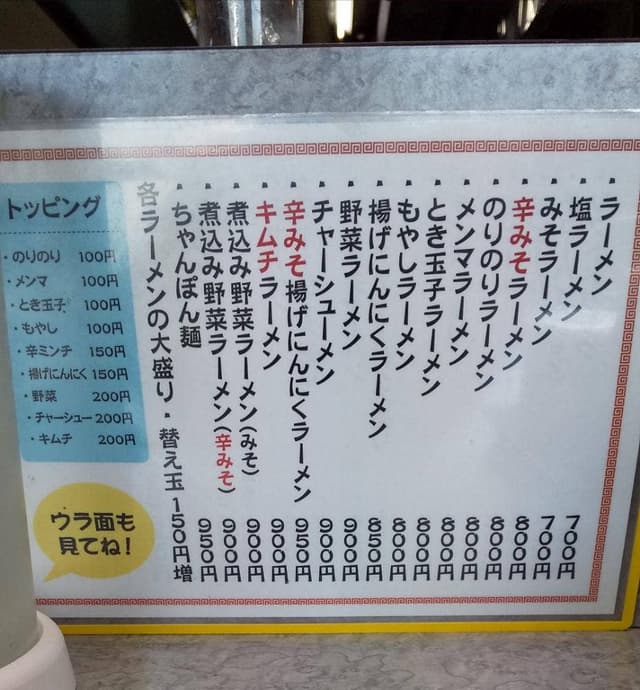 ・ラーメン 700円
・塩ラーメン 700円
・みそラーメン 800円
・辛みそラーメン 800円
・のりのりラーメン 800円
・メンマラーメン 800円
・とき玉子ラーメン 800円
・もやしラーメン 800円
・揚げにんにくラーメン 850円
・野菜ラーメン 900円
・チャーシューメン 900円
・辛みそ揚げにんにくラーメン 950円
・キムチラーメン 900円
・煮込み野菜ラーメン(みそ) 900円
・煮込み野菜ラーメン(辛みそ) 900円
・ちゃんぽん麺 950円
各ラーメンの大盛り・替え玉 150円増
トッピング
・のりのり 100円
・メンマ 100円
・とき玉子 100円
・もやし 100円
・辛ミンチ 150円
・揚げにんにく 150円
・野菜 200円
・チャーシュー 200円
・キムチ 200円
ウラ面も
見てね！